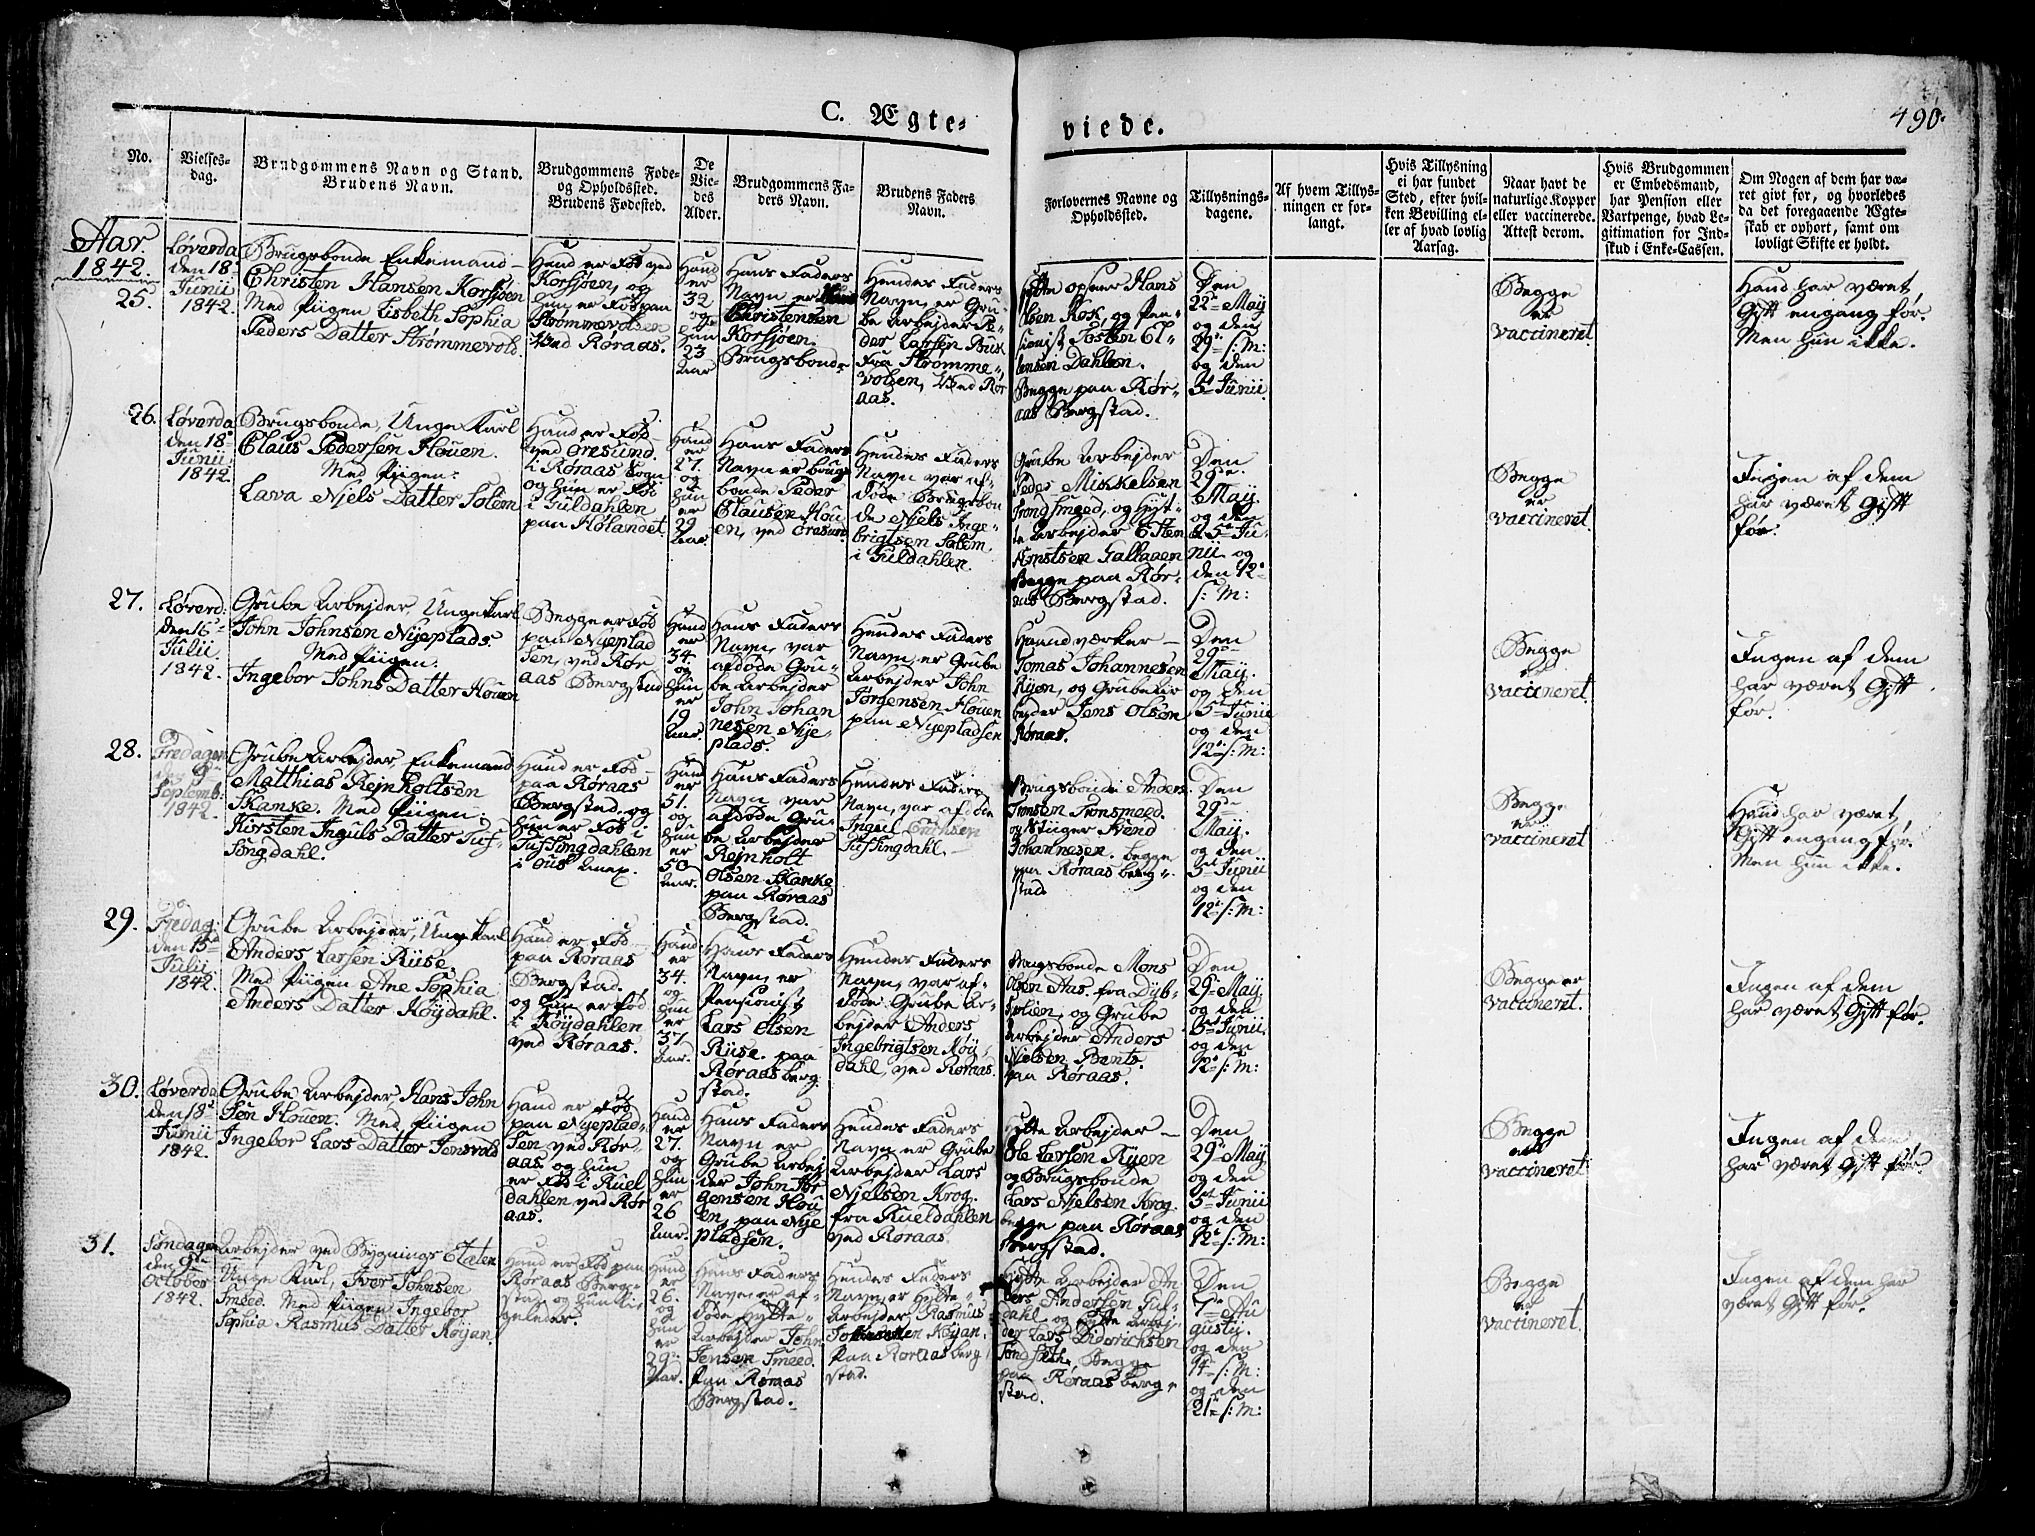 C. Ægte-
viede.
490.
No.
Vielses-
dag.
Brudgommens Navn og Stand.
Brudens Navn.
Brudgommens Føde-
og Opholdssted.
Brudens Fødested.
De
Vie-
des
Alder.
Brudgommens Fa-
ders Navn.
Brudens Faders
Navn.
Forlovernes Navne og
Opholdssted.
Tillysnings-
dagene.
Af hvem Tillys-
ningen er for-
langt.
Hvis Tillysning
ei har fundet
Sted, efter hvil-
ken Bevilling el-
ler af hvad lovlig
Aarsag.
Naar havt de
naturlige Kopper
eller vaccinerede.
Attest derom.
Hvis Brudgommen
er Embedsmand,
har Pension eller
Vartpenge, hvad Le-
gitimation for Ind-
skud i Enke-Cassen.
Om Nogen af dem har væ-
ret givt før, og hvorledes
da det foregaaende Ægte-
skab er ophørt, samt om
lovligt Skifte er holdt.
Aar
1842.
25.
Løverda
den 18
Junii
1842.
Brugsbonde Enkemand
Christen Hansen Korssjøen
Med Piigen Lisbeth Sophia
Peders Datter Strømmevold.
Hand er Fød ved
Korsjøen, og
hun er Fød paa
Strømmevolsen
Ved Røraas.
Hand
er
32
og
hun
23
Aar
Hans Faders
Navn er
Christensen
Korsjøen.
Brugsbonde
Hendes Faders
Navn er Gru-
be Arbejder Pe-
der Larsen Buk
Fra Strømme-
volsen, Ved Rør
aas.
Hans
Olsen Kok, og Pen-
sionist Tosten El-
lensen Dahlen.
Begge paa Rør-
aas Bergstad.
Den
22de May
og den
29de s: M:
og den
5te Junii
Begge
er
vaccineret
Hand har været,
Gift engang før.
Men hun ikke.
26.
Løverda
den 18
Junii
1842.
Brugsbonde, Unge Karl
Claus Pedersen Houen.
Med Piigen:
Lava Njels Datter Solem
Hand er Fød
ved Øresund.
i Røraas Sogn
og hun er Fød
i Guldahlen
paa Hølandet
Hand
er
27.
og
hun
er
29
Aar
Hans Faders
Navn er brugs
bonde Peder
Clausen Hou
en, ved Øresund
Hendes Faders
Navn var af-
døde Brugsbon
de Njels Inge-
brigtsen Solem
i Guldahlen.
Grube Arbejder
Peder Mikkelsen
Trond Smeed, og Hyt-
te Arbejder Esten
Arntsen Galaaen
Begge paa Rør-
aas Bergstad.
Den
29de
May.
og den
5te Ju-
nii og
den 12te
s: M:
Begge
er
vaccineret
Ingen af dem
har været Gift
før.
27.
Løverd:
den 16
Julii
1842.
Grube Arbejder, Unge Karl
John Johnsen Nyeplads.
Med Piigen:
Ingebor Johns Datter Houen
Begge er Fød
paa Nyeplad
sen, ved Rør
aas Bergstad
Hand
er
34.
og
hun
er
19
Aar.
Hans Faders
Navn, var
afdøde Gru-
be Arbejder
John Johan
nesen Nye-
plads.
Hendes Faders
Navn, er Grube
Arbejder John
Jørgensen Houen
paa Nyepladsen
Haandværker
Tomas Johannesen
Ryen, og Grube Ar
bejder Jens Olsen
Røraas.
Den
29de
May.
og den
5te Junii
og den
12te s: M:
Begge
er
vaccineret
Ingen af dem
har været Gift
før.
28.
Fredagen
den 9de
Septemb:
1842.
Grube Arbejder, Enkemand
Matthias Rejnholtsen
Skanke. Med Piigen:
Kirsten Inguls Datter Tuf-
singdahl.
Hand er Fød
paa Røraas
Bergstad, og
hun er Fød i
Tufsingdahlen
i Ous Anex.
Hand
er
51.
og
hun
er
50
Aar.
Hans Faders
Navn var
afdøde Gru-
be Arbejder
Rejnholt
Olsen Skanke
paa Røraas
Bergstad.
Hendes Faders
Navn, var afdøde
Ingul Erichsen
Tufsingdahl.
Brugsbonde Anders
Tronsen Tronsmeed.
og Stiger Svend
Johannesen. begge
paa Røraas berg-
stad
Den
29de
May.
og den
5te Junii
og den
12te s: M:
Begge
er
vaccineret
Hand har været,
Gift engang før.
Men hun ikke.
29.
Fredag:
den 15de
Julii
1842.
Grube Arbejder, Unge Karl
Anders Larsen Riise
Med Piigen Ane Sophia
Anders Datter Røydahl.
Hand er Fød
paa Røraas
Bergstad.
og hun er Fød
i Røydahlen
ved Røraas.
Hand
er
34.
og
hun
er
37
Aar.
Hans Faders
Navn, er
Pensionist
Lars Olsen
Riise. paa
Røraas berg
stad.
Hendes Faders
Navn, var af-
døde Grube Ar-
bejder Anders
Ingebrigtsen Røy-
dahl, ved Røraas.
Brugsbonde Mons
Olsen Aas. fra Dyb-
lien, og Grube
Arbejder Anders
Njelsen
paa Røraas.
Den
29de May,
og den
5te Junii
og den
12te s: M:
Begge er
vaccineret.
Ingen af dem
har været Gift før.
30.
Løverda
den 18
Junii
1842.
Grube Arbejder Hans John
sen Houen. Med Piigen
Ingebor Lars Datter Jensvold
Hand er Fød
paa Nyeplad-
sen, ved Rør-
aas. og hun
er Fød i Ruel
dahlen, ved Rør
aas.
Hand
er
27.
og
hun
er
26
Aar.
Hans Faders
Navn er
Grube Arbej
der John Jør
gensen Hou
en, paa Nye
pladsen.
Hendes Faders
Navn er Grube
Arbejder Lars
Njelsen Krog.
fra Rueldahlen
ved Røraas.
Hytte Arbejder
Ole Larsen Ryen
og Brugsbonde
Lars Njelsen Krog.
begge paa Røraas
Bergstad.
Den
29de May
og den
5te Junii
og den
12te s: M:
Begge
er
vaccineret
Ingen af dem
har været Gift før.
31.
Søndagen
den 9de
October
1842.
Arbejder ved Bygnings Etaten
Unge Karl, Iver Johnsen
Smeed. Med Piigen Ingebor
Sophia Rasmus Datter Røyan.
Hand er Fød paa
Røraas Berg-
stad og hun li-
geledes.
Hand
er
26.
og
hun
er
29
Aar.
Hans Faders
Navn, er af-
døde, Hytte-
Arbejder John
Jensen Smeed.
Paa Røraas
Bergstad.
Hendes Faders
Navn, er Hytte-
Arbejder, Rasmus
Røyan.
Paa Røraas berg
stad.
Hytte Arbejder An-
ders Andersen Guf-
dahl, og Hytte Arbej-
der Lars Diderichsen
Begge
paa Røraas berg-
stad.
Den
7de Au
gusty.
og den
14de s: M:
og den
21de s: M:
Begge
er
vaccineret.
Ingen af dem har
været Gift før.